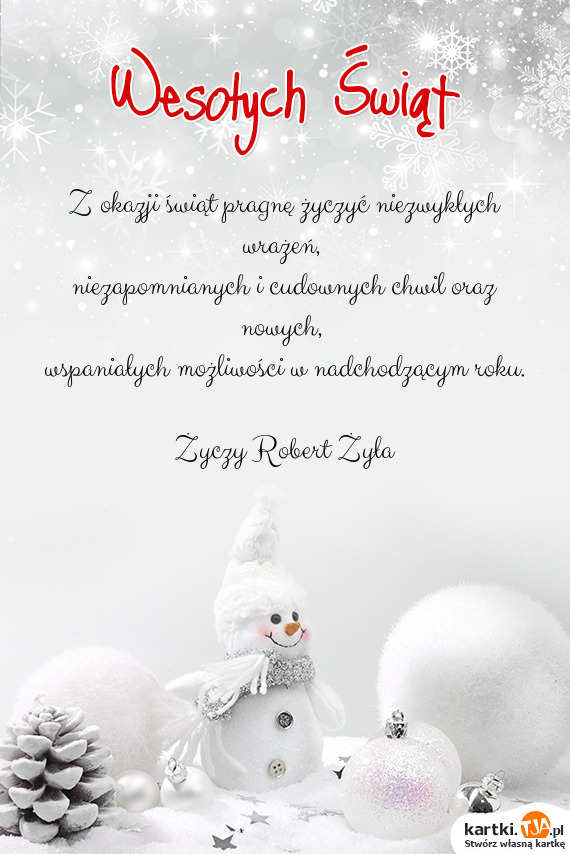 Wesołych Świąt
Z okazji świąt pragnę życzyć niezwykłych
wrażeń,
niezapomnianych i cudownych chwil oraz
nowych,
wspaniałych możliwości w nadchodzącym roku.
Życzy Robert Żyła
kartki.TJA.pl
Stwórz własną kartkę